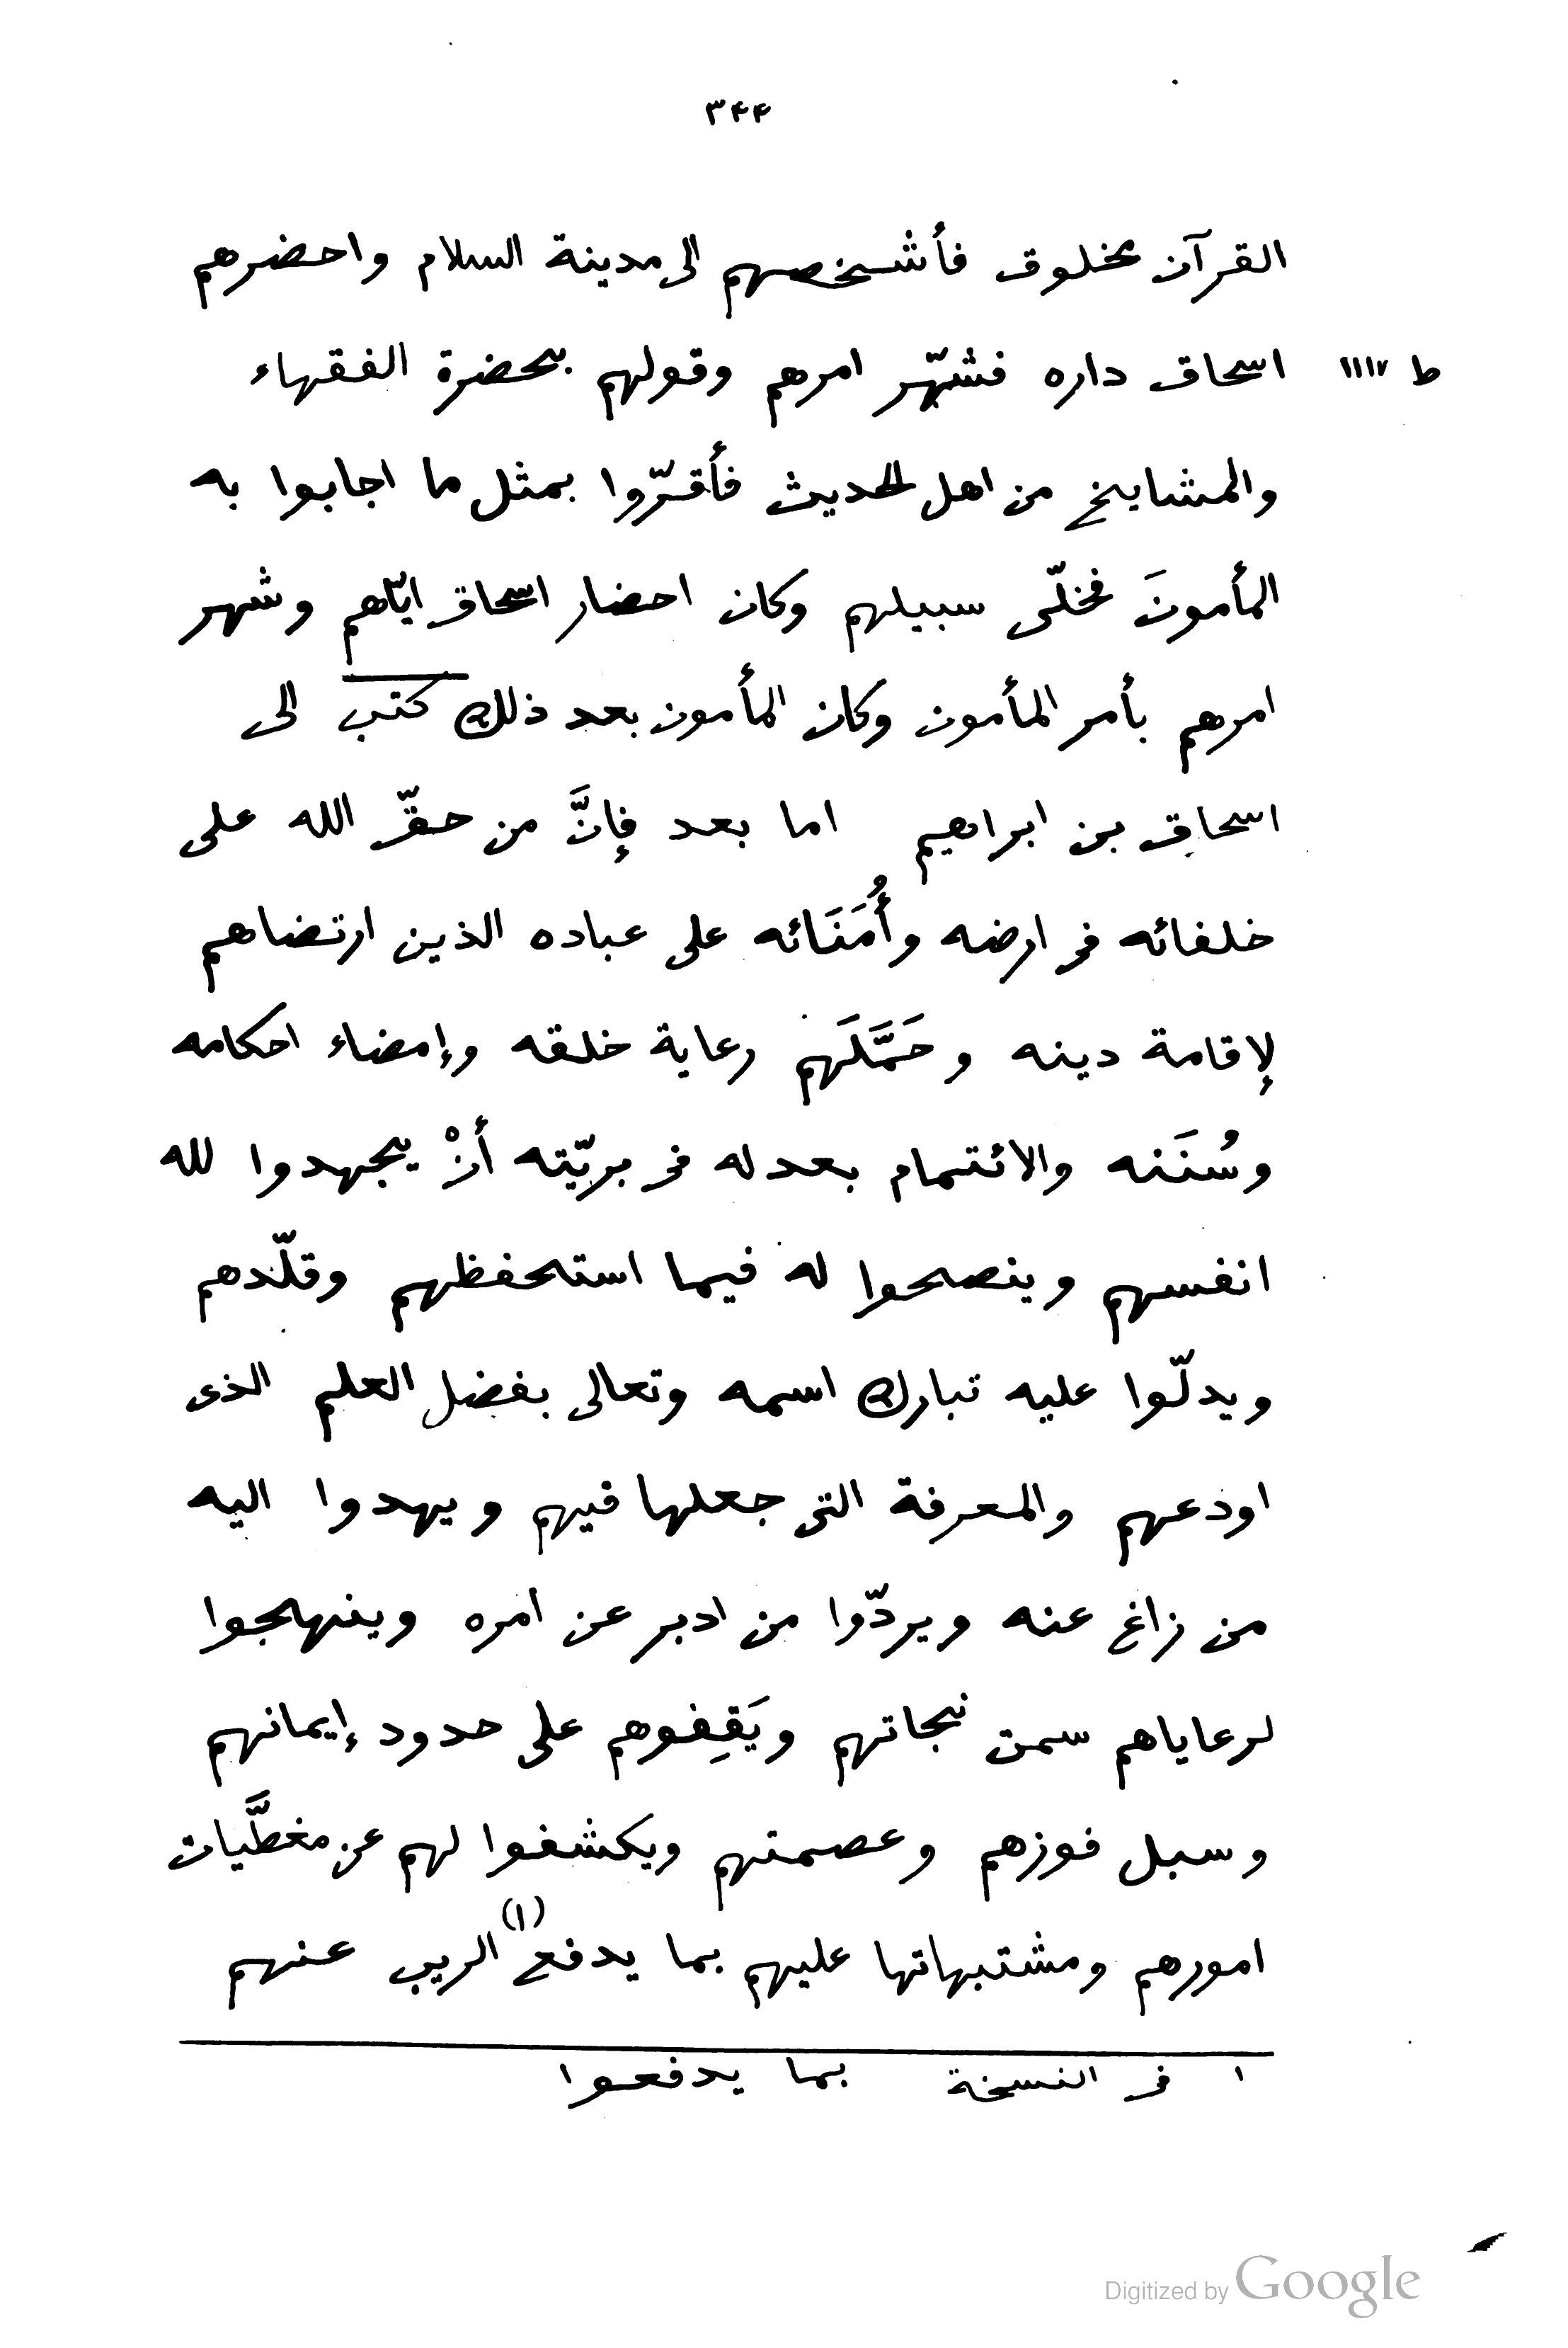 ٣٤٤
القرآن مخلوق فأشخصهم الى مدينة السلام واحضرهم
ط ١١١٧ اسحاق داره فشهّر امرهم وقولهم بحضرة الفقهاء
والمشايخ من اهل الحديث فأقرّوا بمثل ما اجابوا به
المأمونَ فخلّى سبيلهم وكان احضار اسحاق ايّاهم وشهر
امرهم بأمر المأمون وكان المأمون بعد ذلك كتب الى
اسحاق بن ابراهيم اما بعد فإنَّ من حقّ الله على
خلفائه فى ارضه وأُمَنَائه على عباده الذين ارتضاهم
لإقامة دينه وحَمَّلَهم رعاية خلقه وإمضاء احكامه
وسُنَنه والائتمام بعدله فى بريّته أنْ يجهدوا لله
انفسهم وينصحوا له فيما استحفظهم وقلّدهم
ويدلّوا عليه تبارك اسمه وتعالى بفضل العلم الذى
اودعهم والمعرفة التى جعلها فيهم ويهدوا اليه
من زاغ عنه ويردّوا من ادبر عن امره وينهجوا
لرعاياهم سمت نجاتهم ويَقِفوهم على حدود إيمانهم
وسبل فوزهم وعصمتهم ويكشفوا لهم عن مغطَّيات
امورهم ومشتبهاتها عليهم بما يدفع (١) الريب عنهم
١ فى النسخة بما يدفعوا
Digitized by Google